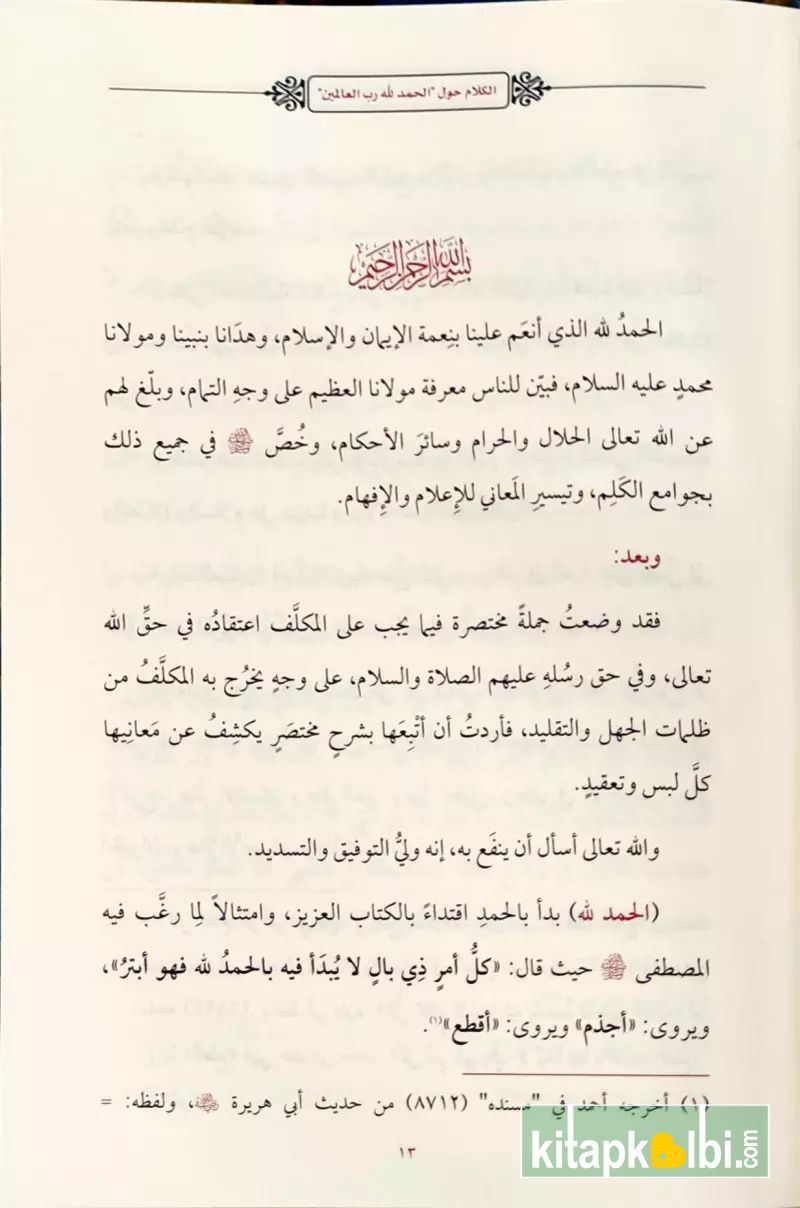 الكلام حول "الحمد لله رب العالمين"
بسم الله الرحمن الرحيم
الحمدُ لله الذي أنعَم علينا بنِعمة الإيمان والإسلام، وهدَانا بنبينا ومولانا
محمدٍ عليه السلام، فبيّن للناس معرفة مولانا العظيم على وجهِ التمام، وبلّغ لهم
عن الله تعالى الحلال والحرام وسائرَ الأحكام، وخُصَّ ﷺ في جميع ذلك
بجوامع الكَلِم، وتيسيرِ المَعاني للإعلام والإفهام.
وبعد:
فقد وضعتُ جملةً مختصرة فيما يجب على المكلَّف اعتقادُه في حقِّ الله
تعالى، وفي حق رسُلهِ عليهم الصلاة والسلام، على وجهٍ يخرُج به المكلَّفُ من
ظلمات الجهل والتقليد، فأردتُ أن أتْبِعَها بشرحٍ مختصَرٍ يكشِفُ عن مَعانِيها
كلَّ لبس وتعقيدٍ.
والله تعالى أسأل أن ينفَع به، إنه وليُّ التوفيق والتسديد.
(الحمد لله) بدأ بالحمدِ اقتداءً بالكتاب العزيز، وامتثالاً لِما رغَّب فيه
المصطفى ﷺ حيث قال: «كلُّ أمرٍ ذِي بالٍ لا يُبدَأ فيه بالحمدُ لله فهو أبترُ»،
ويروى: «أجذم» ويروى: «أقطع»(١).
(١) أخرجه أحمد في "مسنده" (٨٧١٢) من حديث أبي هريرة ﵁، ولفظه: =
١٣
kitapkalbi.com